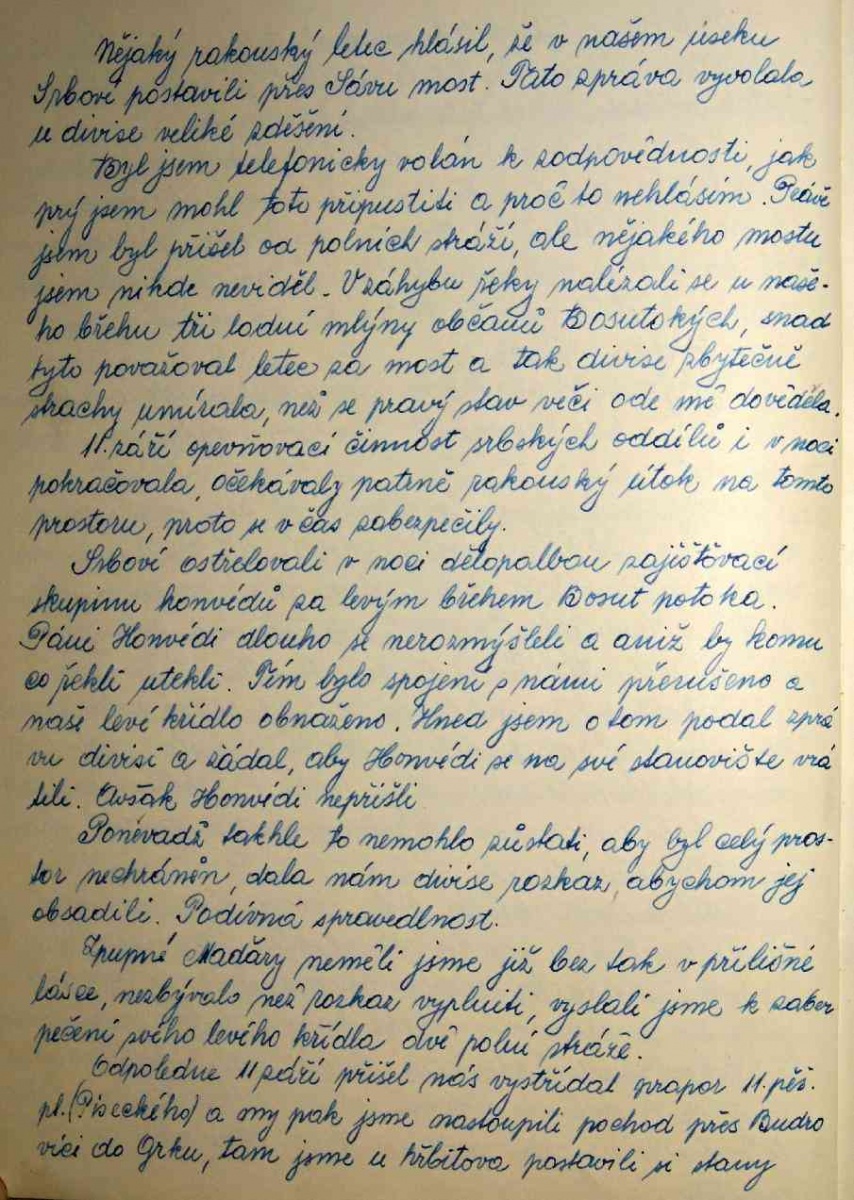 Nějaký rakouský letec hlásil, že v našem úseku
Srbové postavili přes Sávu most. Tato zpráva vyvolala
u divise veliké zděšení.
Byl jsem telefonicky volán k zodpovědnosti, jak
prý jsem mohl toto připustiti a proč to nehlásím. Právě
jsem byl přišel od polních stráží, ale nějakého mostu
jsem nikde neviděl. V záhybu řeky nalézali se u naše-
ho břehu tři lodní mlýny občanů Bosutských, snad
tyto považoval letec za most a tak divise zbytečně
strachy umírala, než se pravý stav věci ode mě dověděla.
11. září opevňovací činnost srbských oddílů i v noci
pokračovala, očekávaly patrně rakouský útok na tomto
prostoru, proto se v čas zabezpečily.
Srbové ostřelovali v noci dělopalbou zajišťovací
skupinu honvédů za levým břehem Bosut potoka.
Páni Honvédi dlouho se nerozmýšleli a aniž by komu
co řekli utekli. Tím bylo spojení s námi přerušeno a
naše levé křídlo obnaženo. Hned jsem o tom podal zprá
vu divisi a žádal, aby Honvédi se na své stanoviště vrá
tili. Avšak Honvédi nepřišli
Poněvadž takhle to nemohlo zůstati, aby byl celý pros-
tor nechráněn, dala nám divise rozkaz, abychom jej
obsadili. Podivná spravedlnost.
Zpupné Maďary neměli jsme již bez tak v přílišné
lásce, nezbývalo než rozkaz vyplniti, vyslali jsme k zabez
pečení svého levého křídla dvě polní stráže.
Odpoledne 11 září přišel nás vystřídat prapor 11. pěš.
pl. (Píseckého) a my pak jsme nastoupili pochod přes Budro
vici do Grku, tam jsme u hřbitova postavili si stany